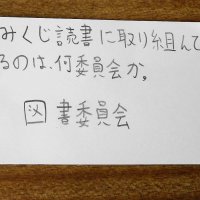 みくじ読書に取り組んで
るのは、何委員会か。
図書委員会